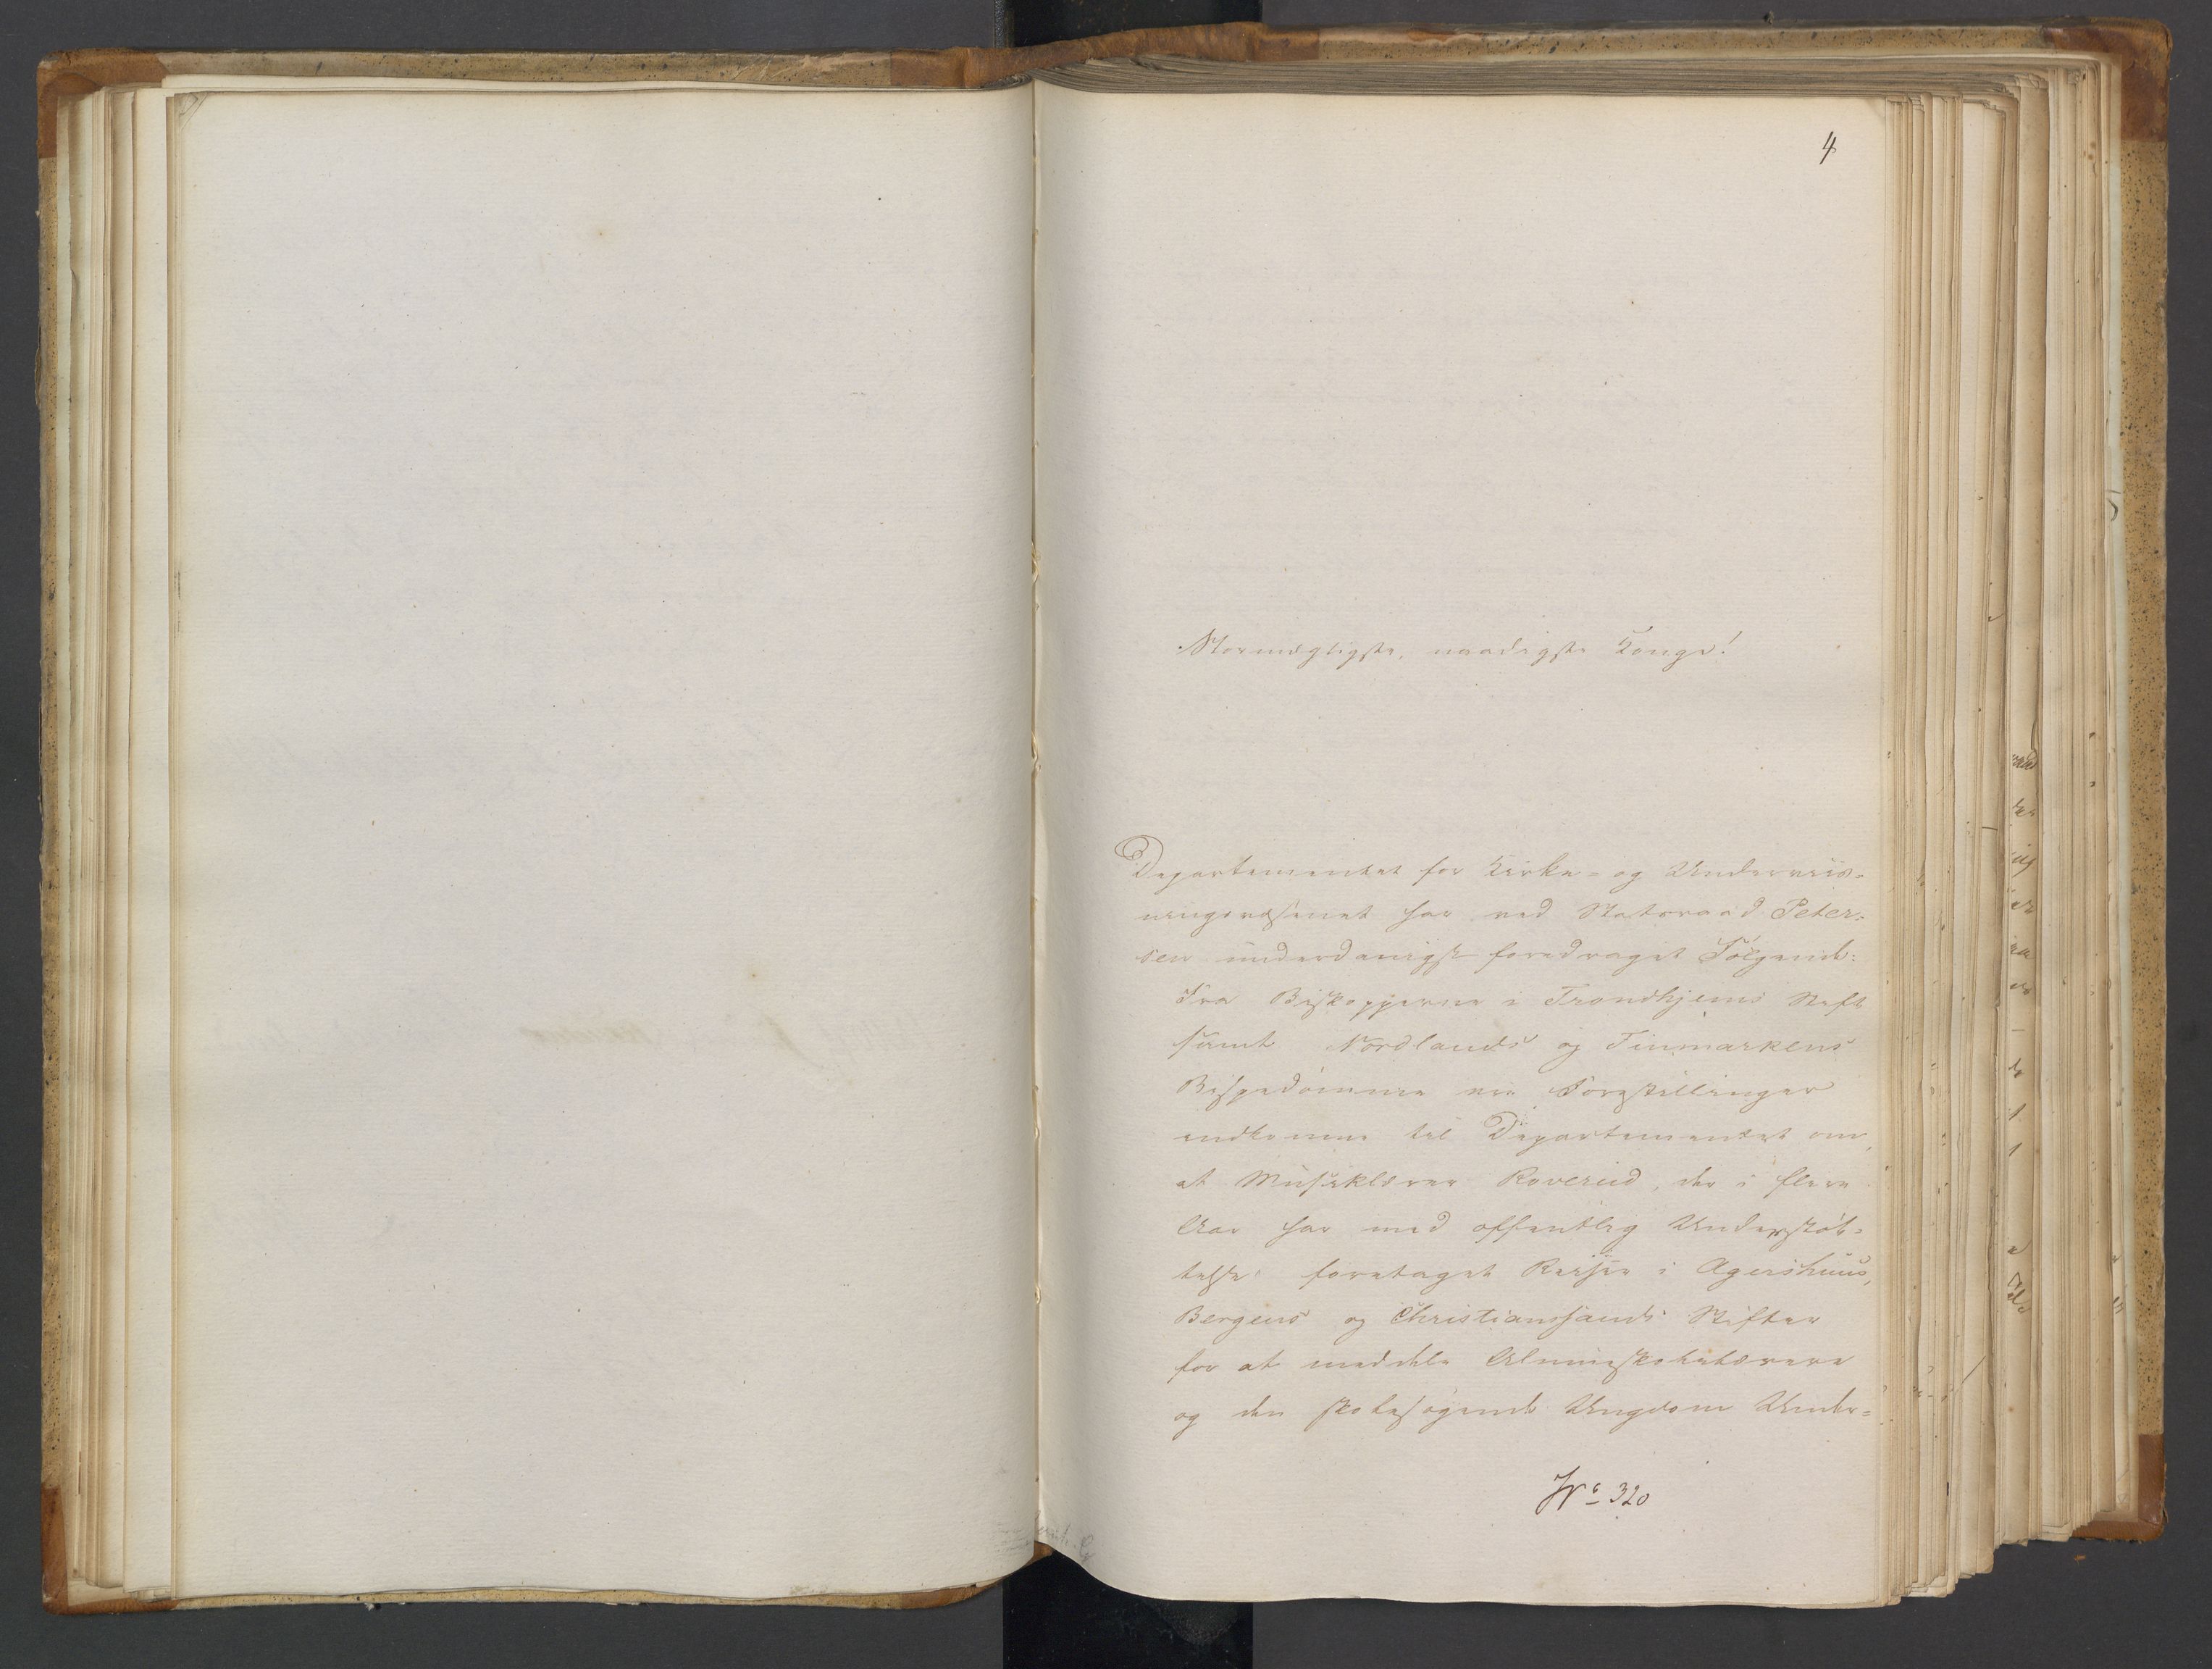 4
Stormægtigste, naadigste Konge!
Departementet for Kirke- og Underviis-
ningsvæsenet har ved Statsraad Peter-
sen underdanigst foredraget Følgende:
Fra Biskopperne i Trondhjems Stift
samt Nordlands og Finmarkens
Bispedømme ere Forestillinger
indkomne til Departementet om,
at Musiklærer Roverud, der i flere
Aar har med offentlig Understøt-
telse foretaget Reiser i Agershuus,
Bergens og Christianssands Stifter
for at meddele Almueskolelærere
og den skolesøgende Ungdom Under-
No 320